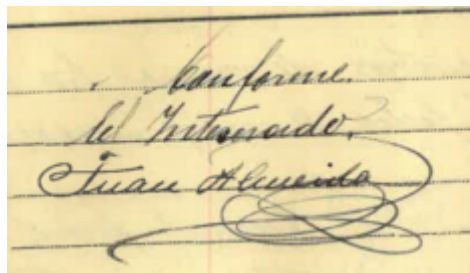 Conforme.
El Interesado.
Juan Almeida